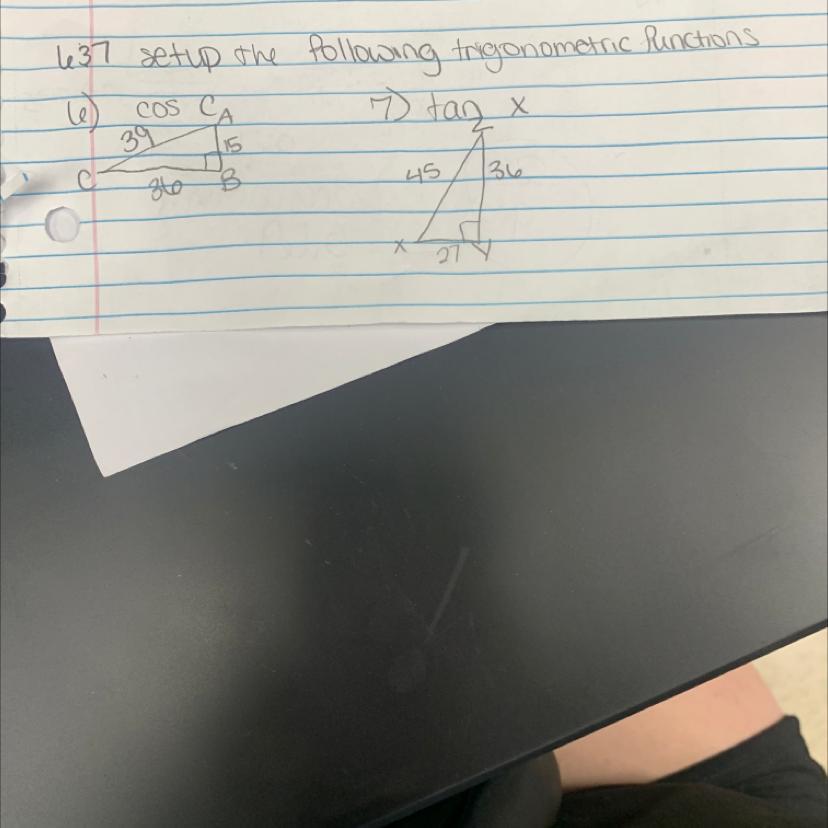 637 setup the following trigonometric functions
6) cos C
7) tan X
A
39
15
C
36
B
Z
45
36
X
27
Y